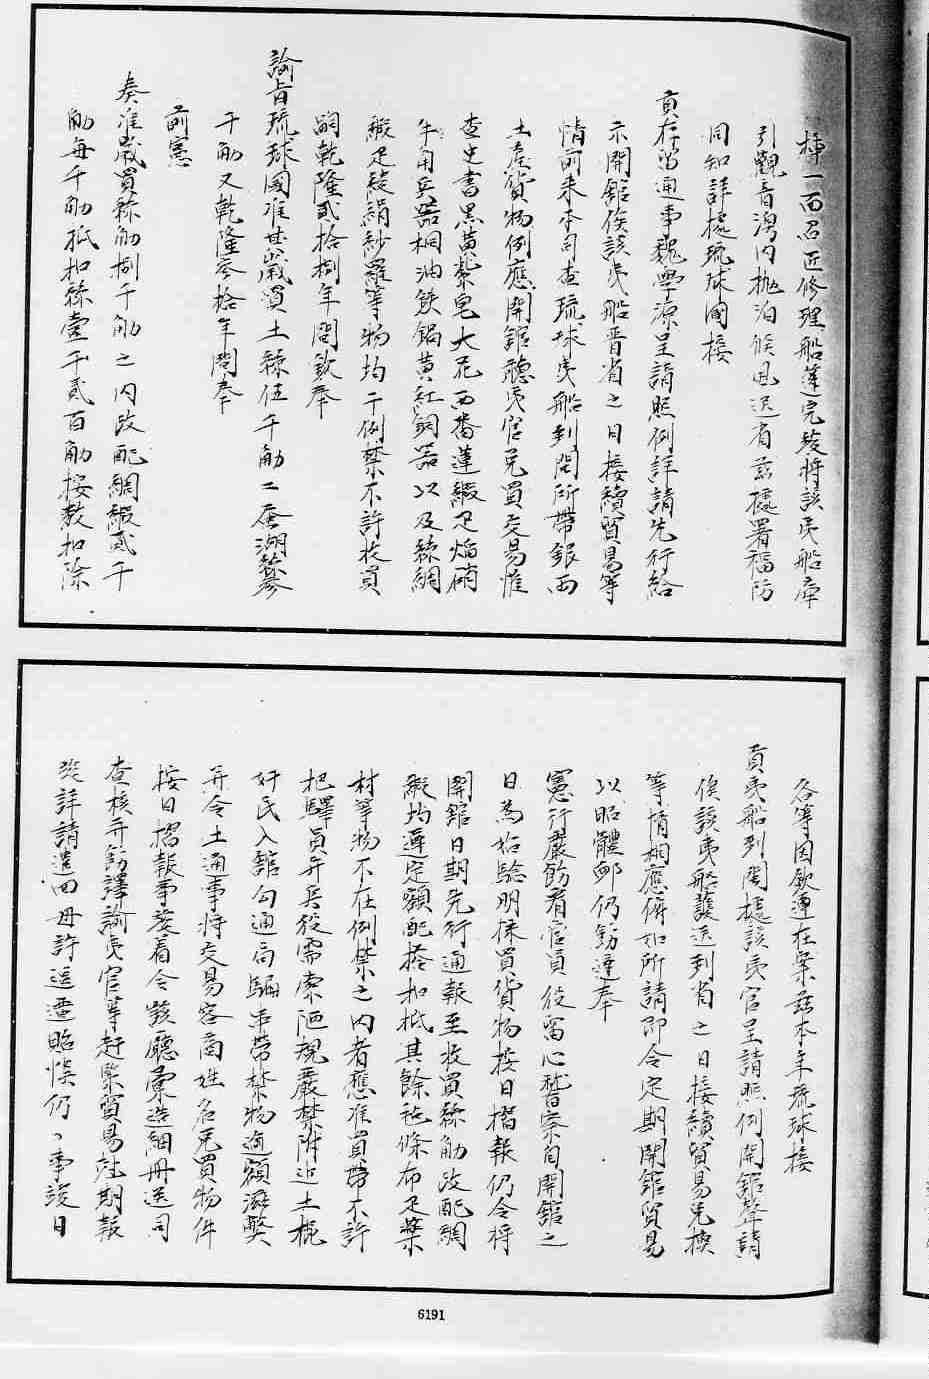 槔一面召匠修理船篷完竣將該夷船牽
引觀音澳內抛泊候風送省玆據署福防
同知詳據琉球國接
貢存留通事魏學源呈請照例詳請先行給
示開館俟該夷船晋省之日接續貿易等
情前来本司查琉球夷船到閩所帶銀両
土產貨物例應開館聽夷官兌買交易惟
查史書黒黄紫皂大花西畨蓮緞疋焔硝
牛角兵器桐油鉄鍋黄紅銅器以及絲綢
緞疋綾絹紗羅等物均干例禁不許收買
嗣乾隆貳拾捌年間欽奉
諭旨琉球國准其歳買土絲伍千觔二蚕湖絲叄
千觔又乾隆叄拾年間奉
前憲
奏准歳買絲觔捌千觔之内改配綢緞貳千
觔每千觔抵扣絲壹千貳百觔按数扣除
各等因欽遵在案玆本年琉球接
貢夷船到閩據該夷官呈請照例開館聲請
俟該夷船護送到省之日接續貿易兌換
等情相應俯如所請即令定期開館貿易
以昭體郵仍飭遵奉
憲行嚴飭看官員役畱心嵆察自開館之
日為始驗明採買貨物按日摺報仍令將
開館日期先行通報至收買絲觔改配綢
緞均遵定額配搭扣抵其餘毡條布疋藥
材等物不在例禁之内者應准買帶不許
把驛員弁兵役需索陋規嚴禁附近土棍
奸民入館勾通局騙串帶禁物逾額滋獘
并令土通事將交易客商姓名兌買物件
按日摺報事蕆着令該廳彙造細冊送司
查核并飭譯諭夷官等赶緊貿易尅期報
竣詳請遣囬毋許逗遛貽悞仍、事竣日
6191